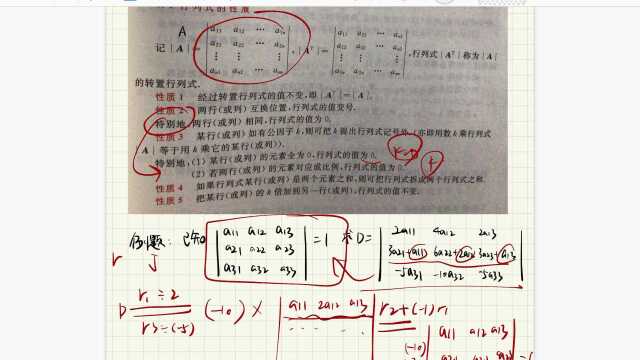 行列式的性质
A
记 | A | = | a11 a12 ⋯ a1n | , | Aᵀ | = | a11 a21 ⋯ an1 | , 行列式 | Aᵀ | 称为 | A |
a21 a22 ⋯ a2n
⋮ ⋮ ⋮
an1 an2 ⋯ ann
的转置行列式.
性质 1 经过转置行列式的值不变,即 | Aᵀ | = | A |.
性质 2 两行(或列)互换位置,行列式的值变号.
特别地,两行(或列)相同,行列式的值为 0.
性质 3 某行(或列)如有公因子 k,则可把 k 提出行列式记号外(亦即用数 k 乘行列式
| A | 等于用 k 乘它的某行(或列)).
特别地,(1) 某行(或列)的元素全为 0,行列式的值为 0.
(2) 若两行(或列)的元素对应成比例,行列式的值为 0.
性质 4 如果行列式某行(或列)是两个元素之和,则可把行列式拆成两个行列式之和.
性质 5 把某行(或列)的 k 倍加到另一行(或列),行列式的值不变.
例题: 已知 | a11 a12 a13 | = 1 求 D = | 2a11 4a12 2a13 |
a21 a22 a23 3a21+a11 6a22+2a12 3a23+a13
a31 a32 a33 -5a31 -10a32 -5a33
r
D r1÷2 (-10) × | a11 2a12 a13 | r2+(-1)r1
r3÷(-5) | a11 a12 a13
(-10)